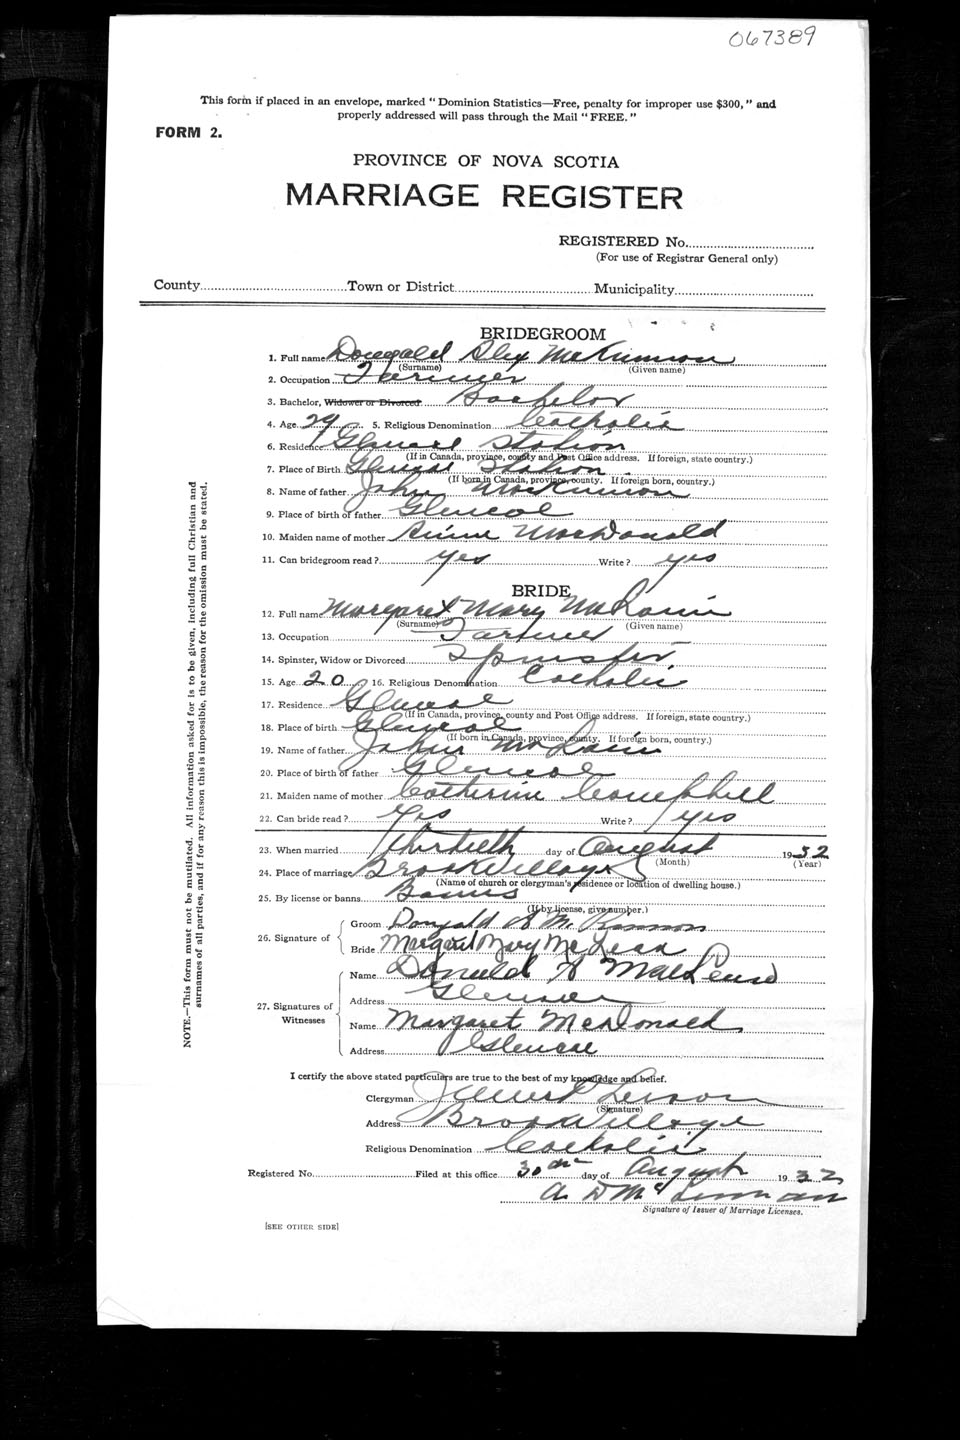 067389
This form if placed in an envelope, marked “Dominion Statistics—Free, penalty for improper use $300,” and
properly addressed will pass through the Mail “FREE.”
FORM 2.
PROVINCE OF NOVA SCOTIA
MARRIAGE REGISTER
REGISTERED No.
(For use of Registrar General only)
County Town or District Municipality
BRIDEGROOM
1. Full name Donegald Alex McKinnon
(Surname) (Given name)
2. Occupation Farmer
3. Bachelor, Widower or Divorced Bachelor
4. Age 29 5. Religious Denomination Catholic
6. Residence Glencoe Station
(If in Canada, province, county and Post Office address. If foreign, state country.)
7. Place of Birth Glencoe Station
(If born in Canada, province, county. If foreign born, country.)
8. Name of father John MacKinnon
9. Place of birth of father Glencoe
10. Maiden name of mother MacDonald
11. Can bridegroom read? yes Write? yes
BRIDE
12. Full name Margaret Mary
(Surname) (Given name)
13. Occupation Farmer
14. Spinster, Widow or Divorced Spinster
15. Age 20 16. Religious Denomination Catholic
17. Residence Glencoe
(If in Canada, province, county and Post Office address. If foreign, state country.)
18. Place of birth Glencoe
(If born in Canada, province, county. If foreign born, country.)
19. Name of father John
20. Place of birth of father Glencoe
21. Maiden name of mother Catherine Campbell
22. Can bride read? Yes Write? yes
23. When married Thirtieth day of August 1932
(Month) (Year)
24. Place of marriage Brook Village
(Name of church or clergyman's residence or location of dwelling house.)
25. By license or banns Banns
(If by license, give number.)
26. Signature of
Groom Donald A McKinnon
Bride Margaret Mary McLean
27. Signatures of
Witnesses
Name Donald A
Address Glencoe
Name Margaret McDonald
Address Glencoe
I certify the above stated particulars are true to the best of my knowledge and belief.
Clergyman
(Signature)
Address Brook Village
Religious Denomination Catholic
Registered No. Filed at this office 30th day of August 1932
A D
Signature of Issuer of Marriage Licenses.
[SEE OTHER SIDE]
NOTE.—This form must not be mutilated. All information asked for is to be given, including full Christian and
surnames of all parties, and if for any reason this is impossible, the reason for the omission must be stated.